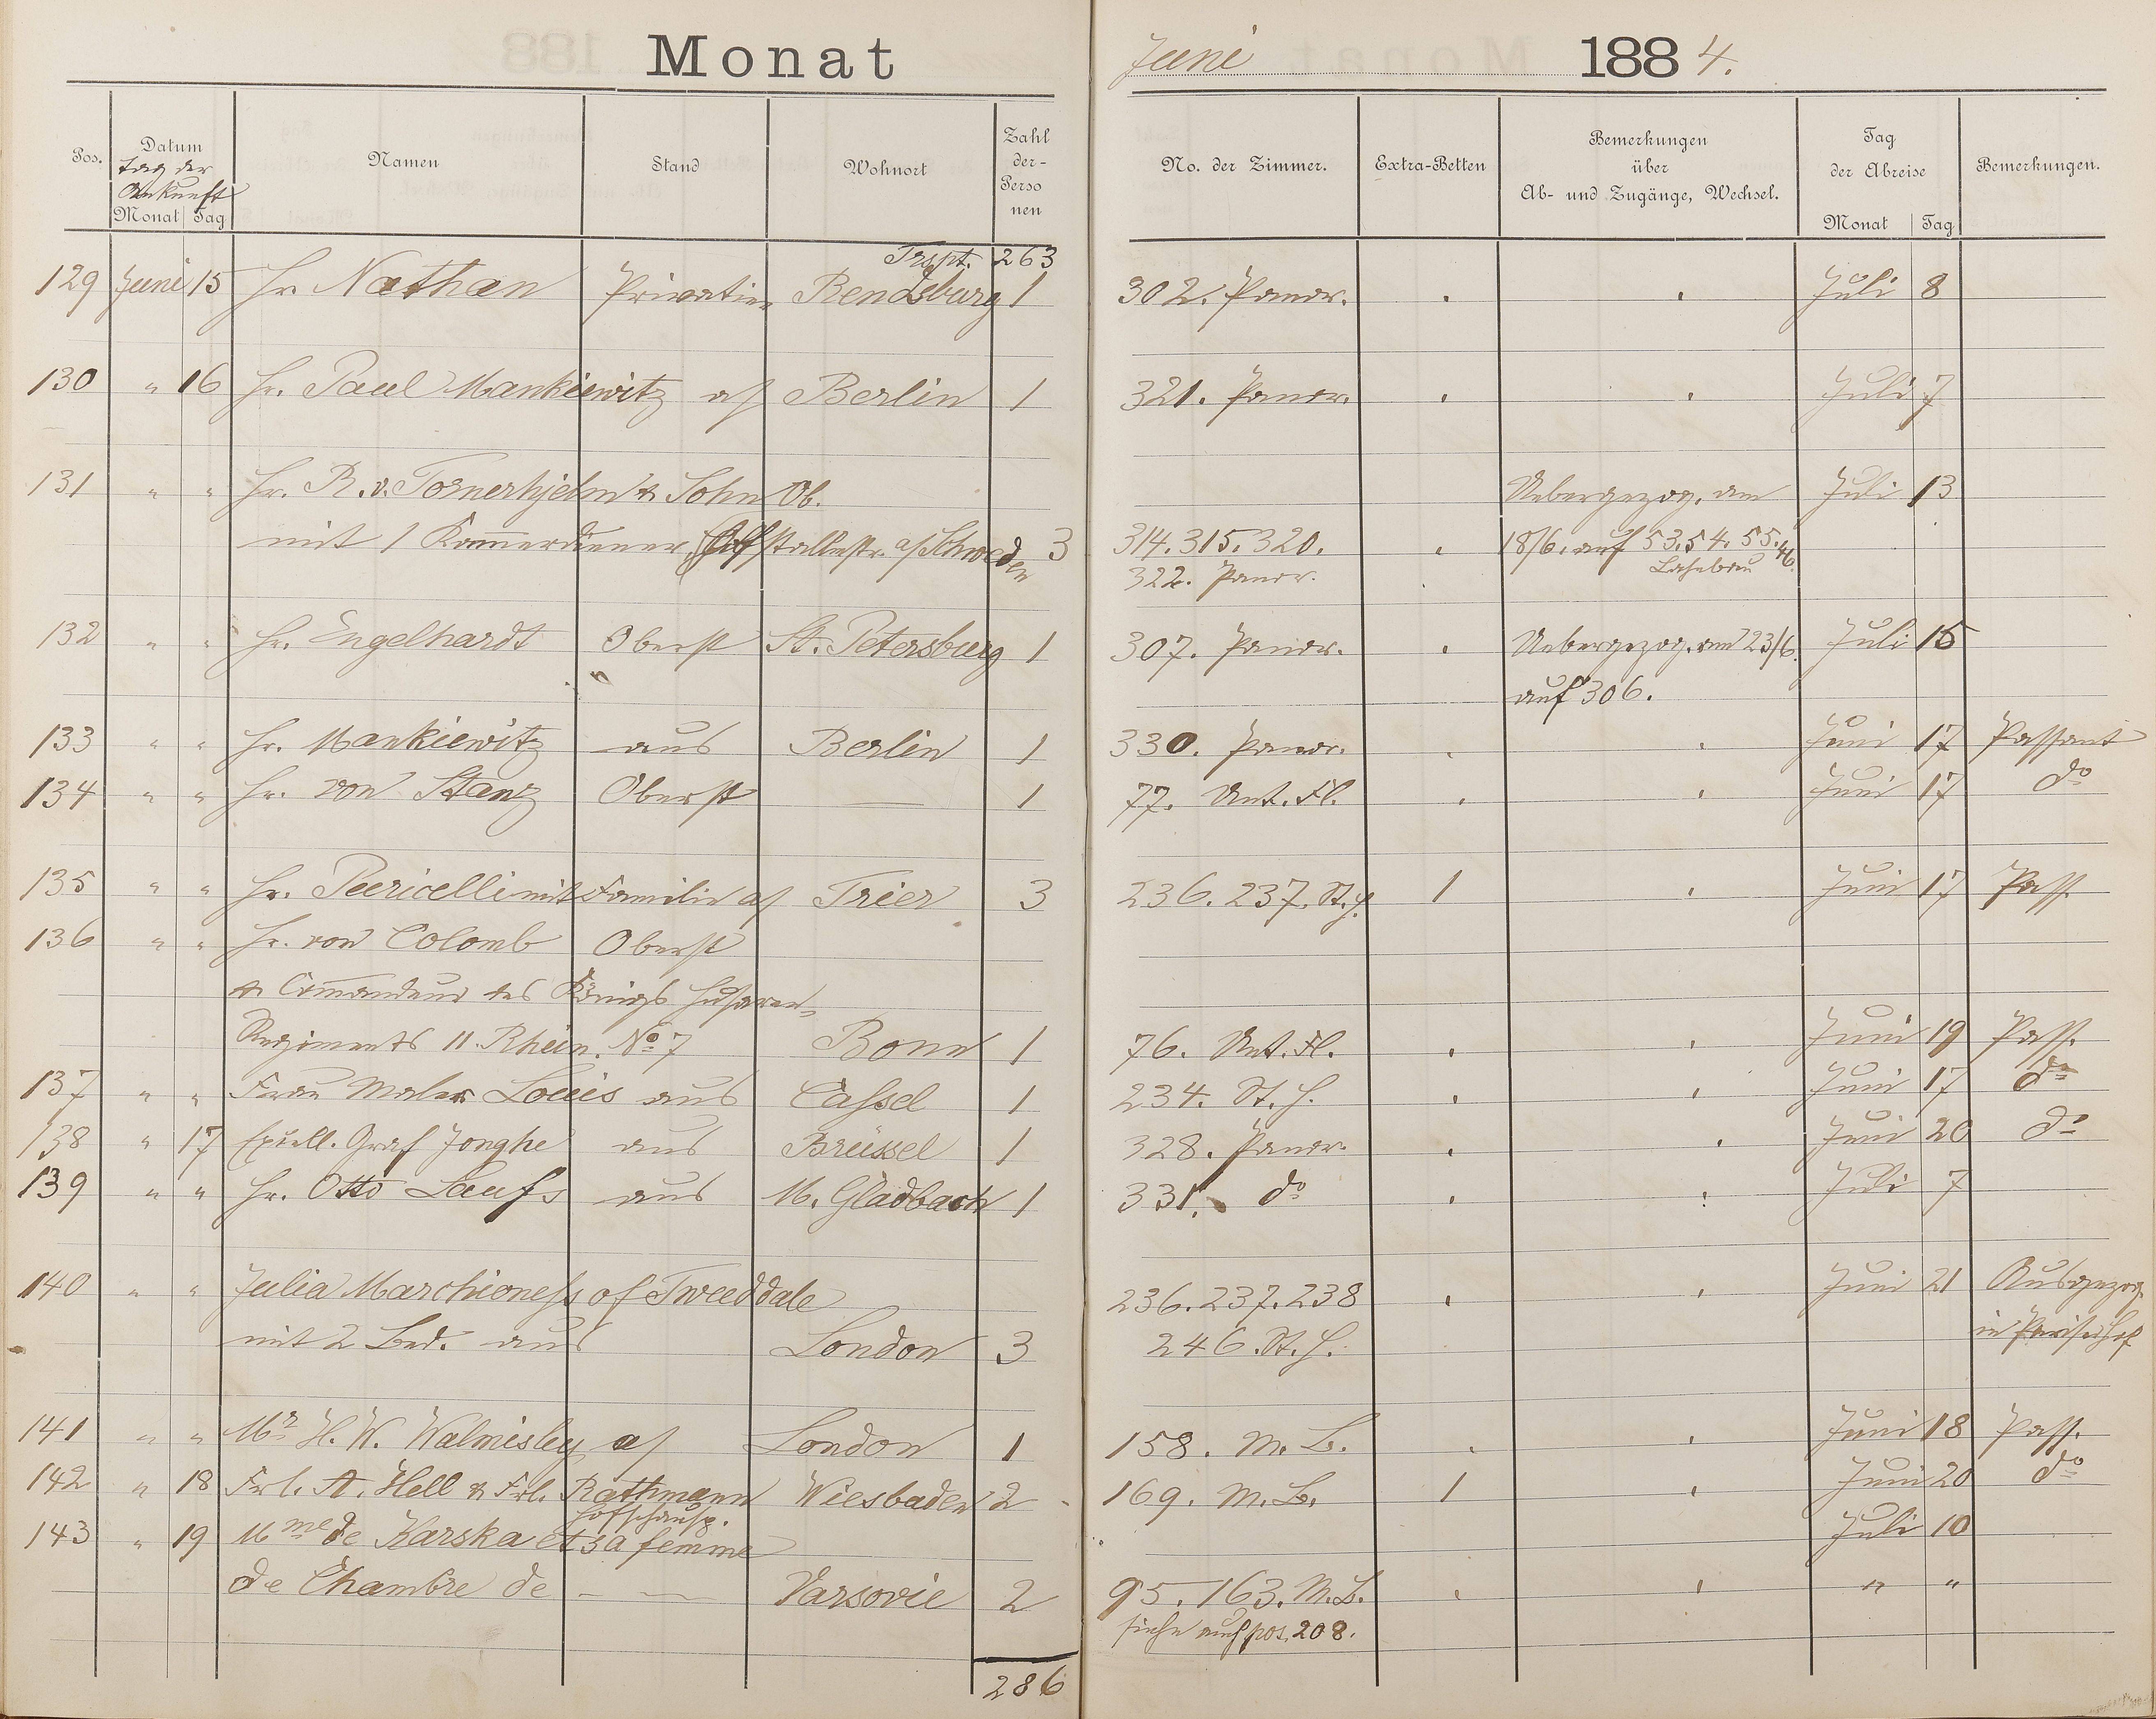 Monat
Juni 1884.
Pos. Datum Namen Stand Wohnort Zahl der- Perso nen No. der Zimmer. Extra-Betten Bemerkungen über Ab- und Zugänge, Wechsel. Tag der Abreise Bemerkungen.
Tag der Ankunft
Monat Tag Monat Tag
Trspt. 263
129 Juni 15 Hr. Nathan Privatier Rendsburg 1 302. Panor. Juli 8
130 " 16 Hr. Paul Mankiewitz a/ Berlin 1 321. Panor. Juli 7
131 " " Hr. R. v. Tornerhjelm & Sohn Ob. Uebergezog. am Juli 13
mit 1 Kammerdiener, Hofstallmstr. a/ Schweden 3 314. 315. 320. 18/6. auf 53. 54. 55. 46.
322. Panor. Lahnbau
132 " " Hr. Engelhardt Oberst St. Petersburg 1 307. Panor. Uebergezog. am 23/6. Juli 15
auf 306.
133 " " Hr. Mankiewitz aus Berlin 1 330. Panor. Juni 17 Passant
134 " " Hr. von Stanz Oberst — 1 77. Unt. Fl. Juni 17 do
135 " " Hr. Peericelli mit Familie a/ Trier 3 236. 237. St. H. 1 Juni 17 Pass.
136 " " Hr. von Colomb Oberst
& Commandeur des Königs Husaren-
Regiments 11. Rhein. No 7 Bonn 1 76. Unt. Fl. Juni 19 Pass.
137 " " Frau Maler Louis aus Cassel 1 234. St. H. Juni 17 do
138 " 17 Excell. Graf Jonghe aus Brüssel 1 328. Panor. Juni 20 do
139 " " Hr. Otto Laufs aus M. Gladbach 1 331. do Juli 7
140 " " Julia Marchioness of Tweeddale 236. 237. 238 Juni 21 Ausgezog.
mit 2 Bed. aus London 3 246. St. H. in Pariserhof
141 " " Mr H. W. Walmisley a/ London 1 158. M. B. Juni 18 Pass.
142 " 18 Frl. A. Hell & Frl. Rathmann Wiesbaden 2 169. M. B. 1 Juni 20 do
Hofschausp.
143 " 19 Mme de Karska et sa femme Juli 10
de Chambre de — — Varsovie 2 95. 163. M. B. " "
siehe auch pos. 208.
286